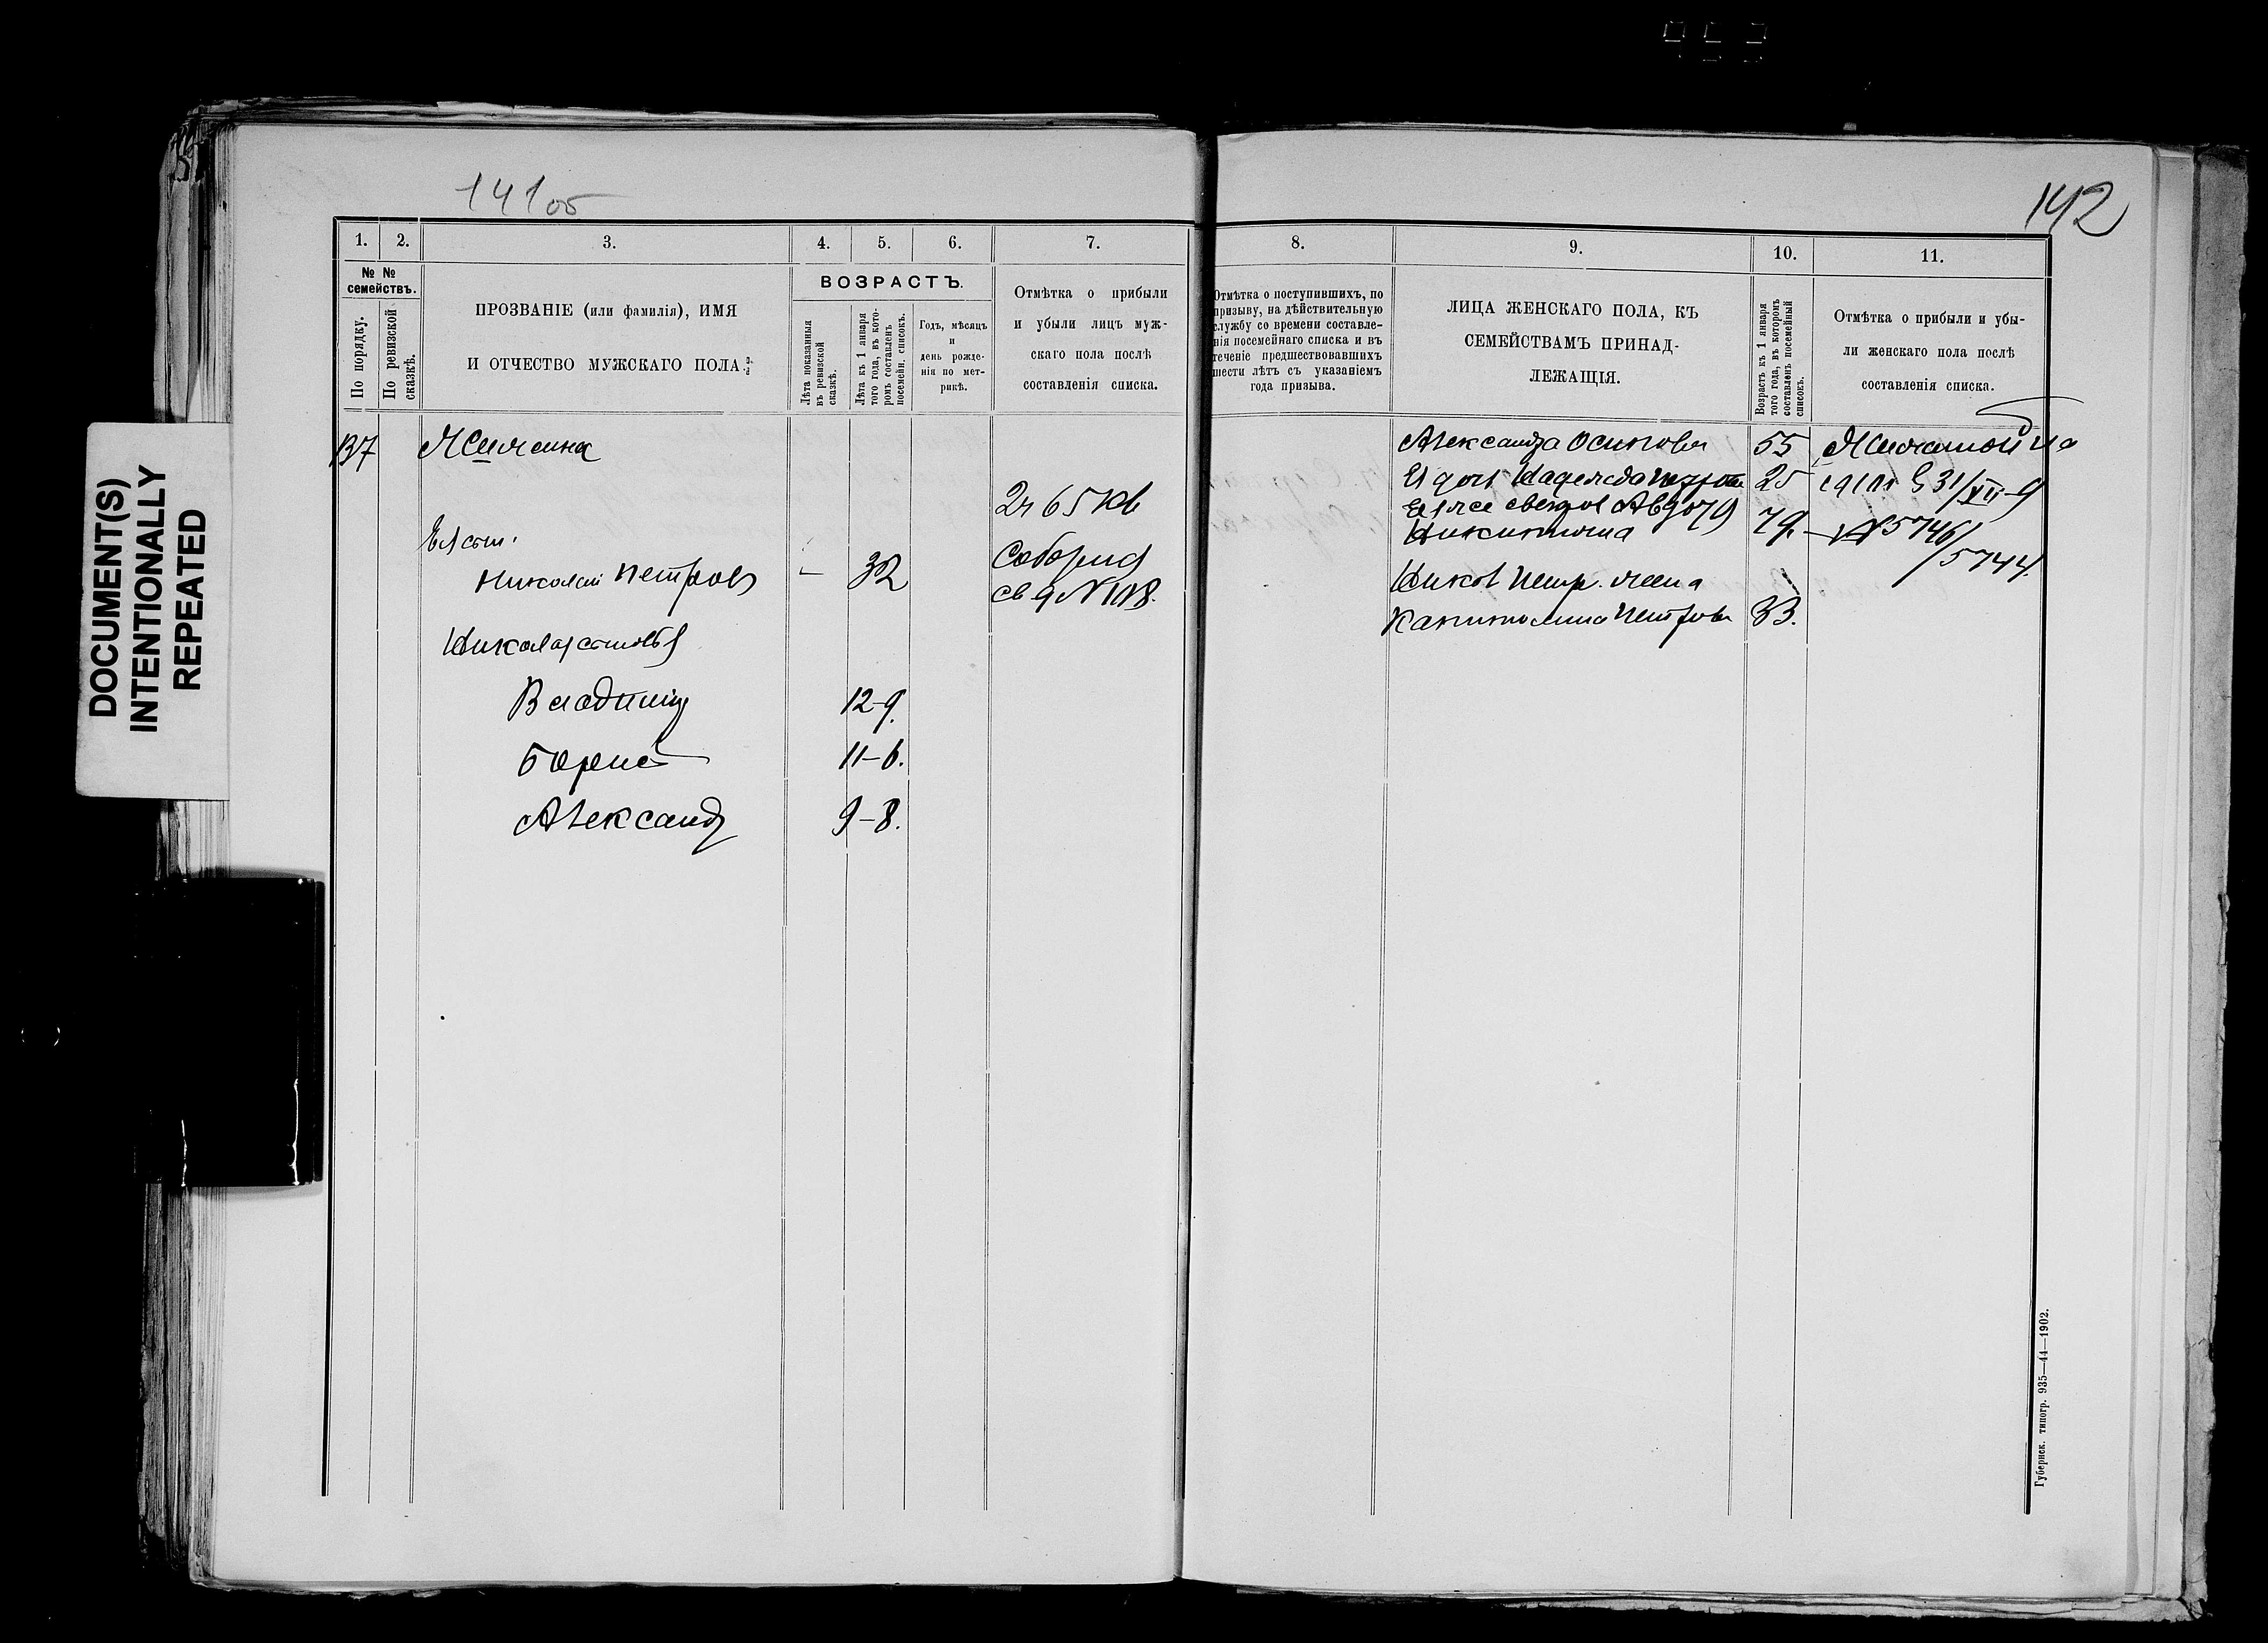 141 об
142
DOCUMENT(S)
INTENTIONALLY
REPEATED
1.
2.
3.
4.
5.
6.
7.
№ №
семействъ.
По порядку.
По ревизской
сказкѣ.
ПРОЗВАНІЕ (или фамилія), ИМЯ
И ОТЧЕСТВО МУЖСКАГО ПОЛА
ВОЗРАСТЪ.
Лѣта показанныя
въ ревизской
сказкѣ.
Лѣта къ 1 января
того года, въ кото-
ромъ составленъ
посемейн. списокъ.
Годъ, мѣсяцъ
и
день рожде-
нія по мет-
рикѣ.
Отмѣтка о прибыли
и убыли лицъ муж-
скаго пола послѣ
составленія списка.
137
2ч 65 кв
Ея сын.
Николай Петровъ
32
Соборна
св д № 118.
Николая сыновья
Владимір
12-9.
Борисъ
11-6.
Александр
9-8.
8.
9.
10.
11.
Отмѣтка о поступившихъ, по
призыву, на дѣйствительную
службу со времени составле-
нія посемейнаго списка и въ
теченіе предшествовавшихъ
шести лѣтъ съ указаніемъ
года призыва.
ЛИЦА ЖЕНСКАГО ПОЛА, КЪ
СЕМЕЙСТВАМЪ ПРИНАД-
ЛЕЖАЩІЯ.
Возрастъ къ 1 января
того года, въ которомъ
составленъ посемейный
списокъ.
Отмѣтка о прибыли и убы-
ли женскаго пола послѣ
составленія списка.
Александра Осипова
55
Ея доч Надежда Петрова
25
31/XII-9
Ея же свекров Авдотя
Никитична
79.
№ 5746/
/5744.
Никол Петр. жена
Капитолина Петрова
33.
Губернск. типогр. 935—44—1902.